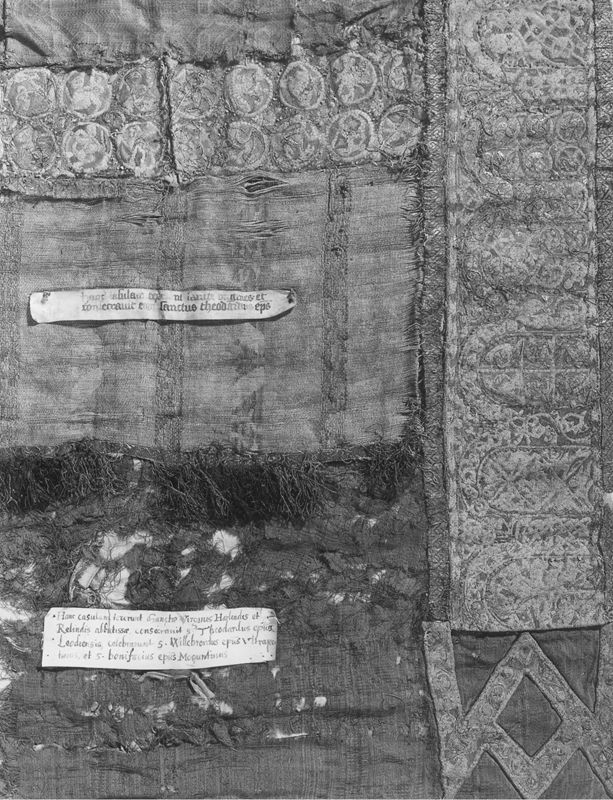 hanc casulam et
consecravit eam sanctus theodardus eps
Hanc casulam texerunt Sanctæ Virgines Harlindes et
Relindis abbatissæ consecravit S. Theodardus epūs
Leodiensis, celebrarunt S. Willebrordus epūs
et S. bonifacius epūs Moguntinus